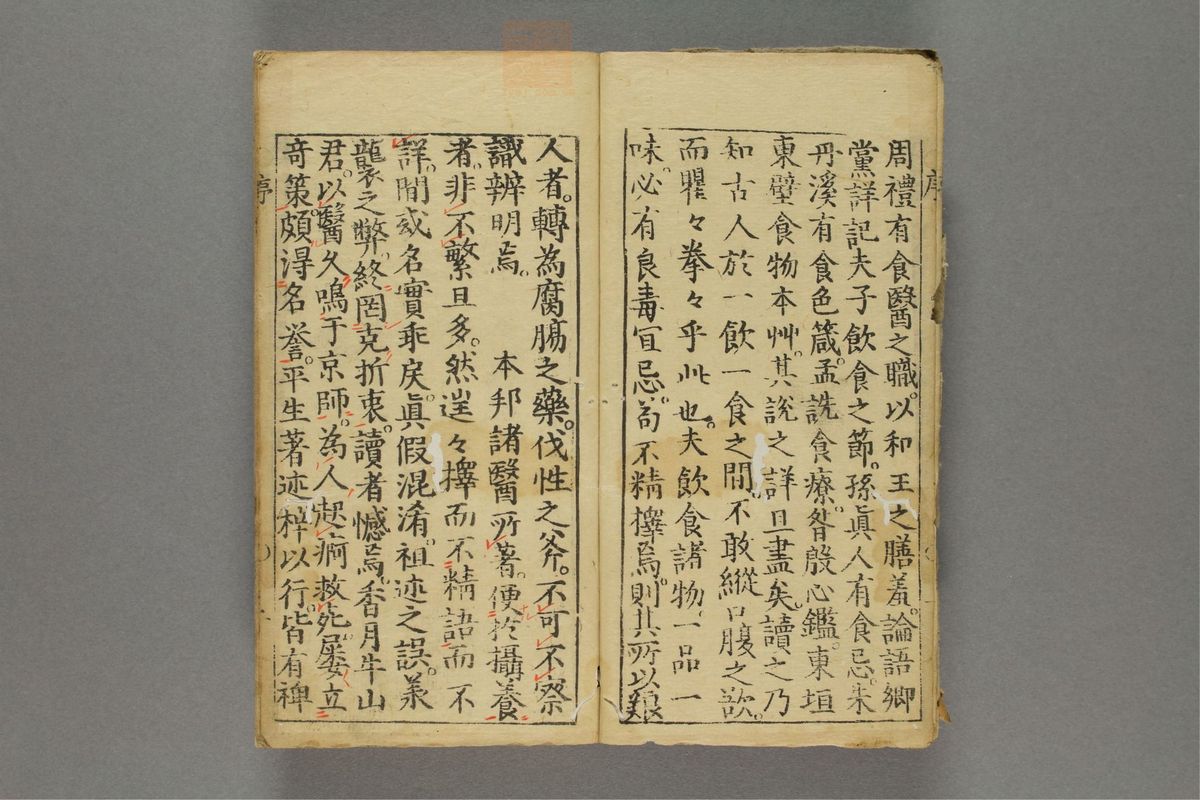 序
周禮有食醫之職。以和王之膳羞。論語鄉
黨詳記夫子飲食之節。孫眞人有食忌。朱
丹溪有食色箴。孟詵食療。昝殷心鑑。東垣
東壁食物本艸。其說之詳且盡矣。讀之乃
知古人於一飲一食之間。不敢縱口腹之欲。
而瞿々拳々乎此也。夫飲食諸物。一品一
味。必有良毒宜忌。苟不精擇焉。則其所以
人者。轉為腐腸之藥。伐性之斧。不可不察
識辨明焉。 本邦諸醫所著。便於攝養
者。非不繁且多。然逞々擇而不精語而不
詳。間或名實乖戾。眞假混淆。祖述之誤。羕
襲之弊。終罔克折衷。讀者憾焉。香月牛山
君。以醫久鳴于京師。為人起痾救死。屡立
奇策。頗淂名誉。平生著述梓以行。皆有裨
序